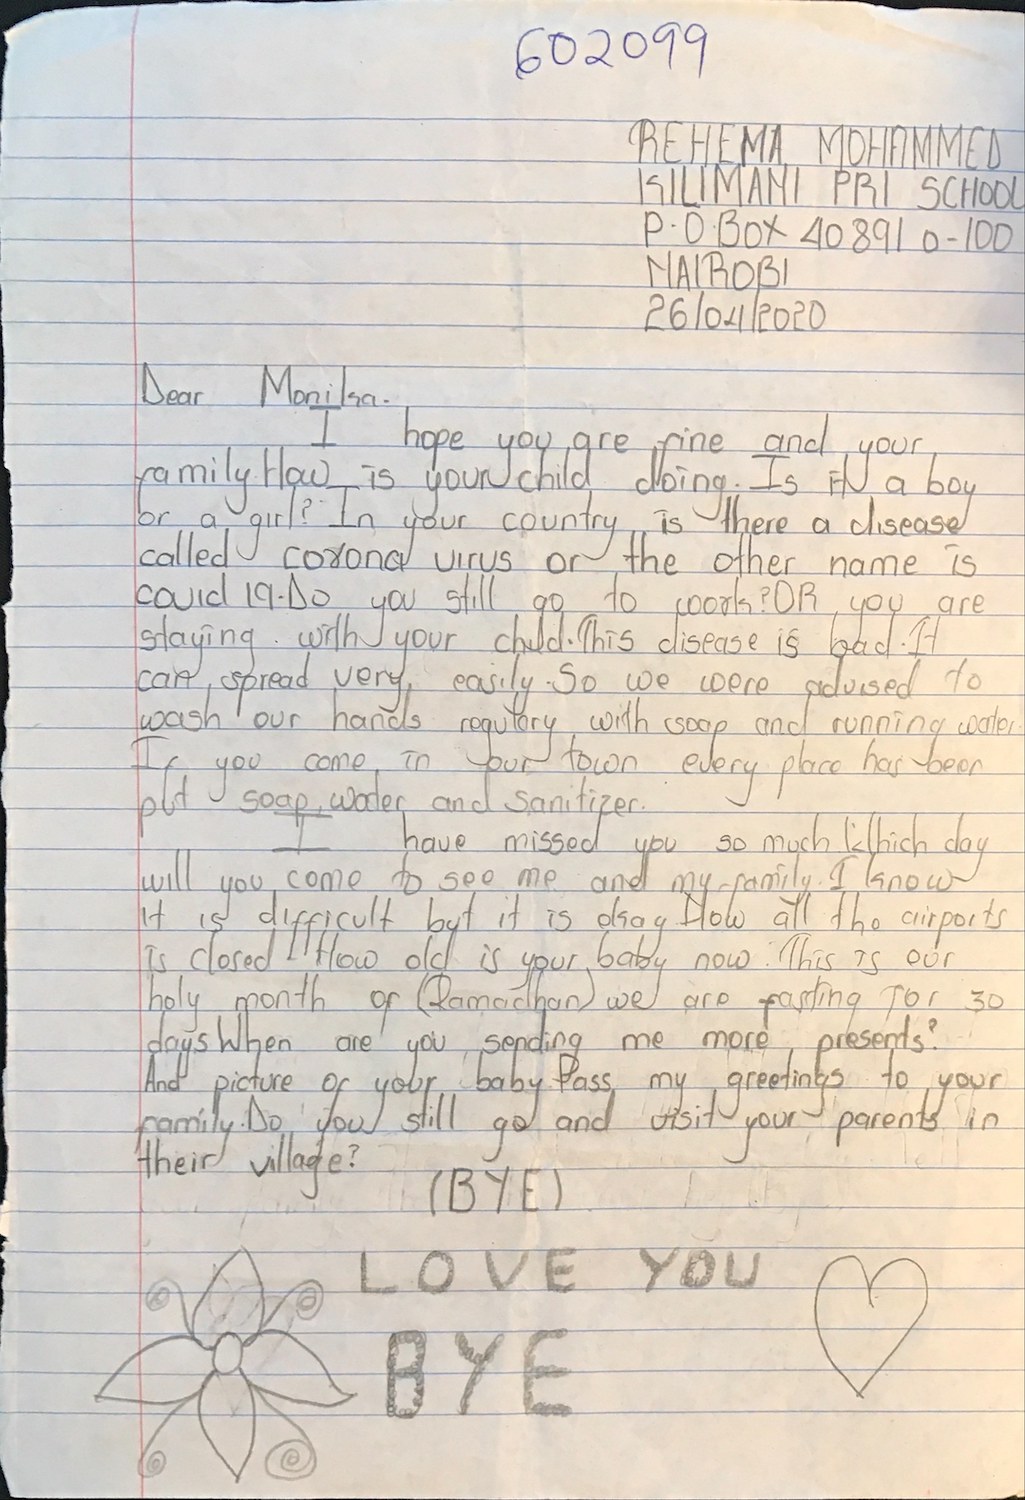 602099
REHEMA MOHAMMED
KILIMANI PRI SCHOOL
P.O.BOX 40891 0-100
NAIROBI
26/04/2020
Dear Monika.
I hope you are fine and your
family.How is your child doing. Is it a boy
or a girl? In your country is there a disease
called corona virus or the other name is
covid 19.Do you still go to work?OR you are
staying with your child.This disease is bad.It
can spread very easily.So we were advised to
wash our hands regulary with soap and running water.
If you come in our town every place has been
put soap, water and sanitizer.
I have missed you so much Which day
will you come to see me and my family.I know
it is difficult but it is okay Now all the airports
is closed How old is your baby now.This is our
holy month of (Ramadhan) we are fasting for 30
days When are you sending me more presents?
And picture of your baby Pass my greetings to your
family.Do you still go and visit your parents in
their village?
(BYE)
LOVE YOU
BYE